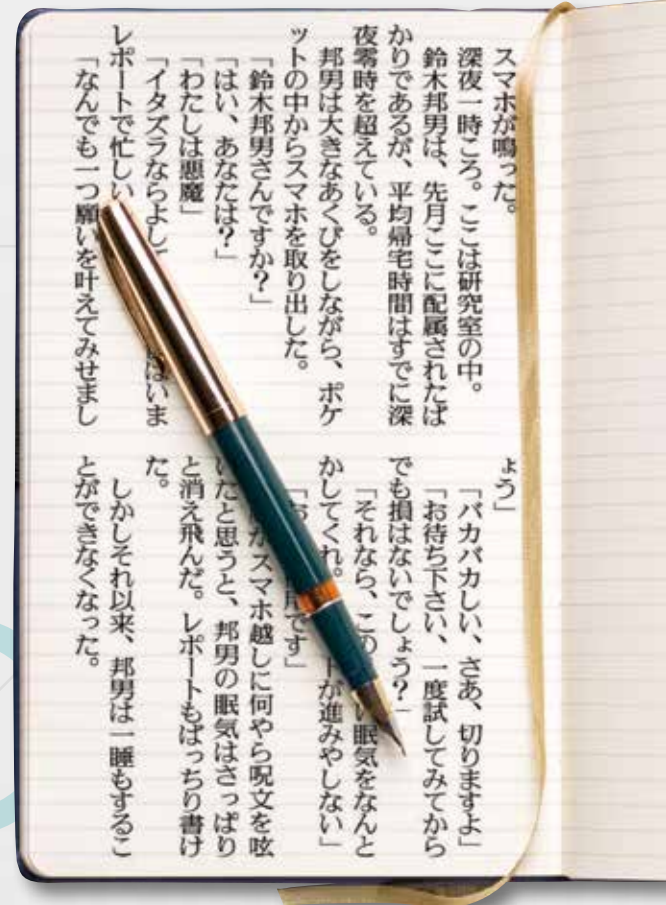 スマホが鳴った。
深夜一時ころ。ここは研究室の中。
鈴木邦男は、先月ここに配属されたば
かりであるが、平均帰宅時間はすでに深
夜零時を超えている。
邦男は大きなあくびをしながら、ポケ
ットの中からスマホを取り出した。
「鈴木邦男さんですか？」
「はい、あなたは？」
「わたしは悪魔」
「イタズラならよして はいま
レポートで忙しい
「なんでも一つ願いを叶えてみせまし
ょう」
「バカバカしい、さあ、切りますよ」
「お待ち下さい、一度試してみてから
でも損はないでしょう？」
「それなら、この い眠気をなんと
かしてくれ。 トが進みやしない」
「お 用です」
がスマホ越しに何やら呪文を呟
いたと思うと、邦男の眠気はさっぱり
と消え飛んだ。レポートもばっちり書け
た。
しかしそれ以来、邦男は一睡もするこ
とができなくなった。